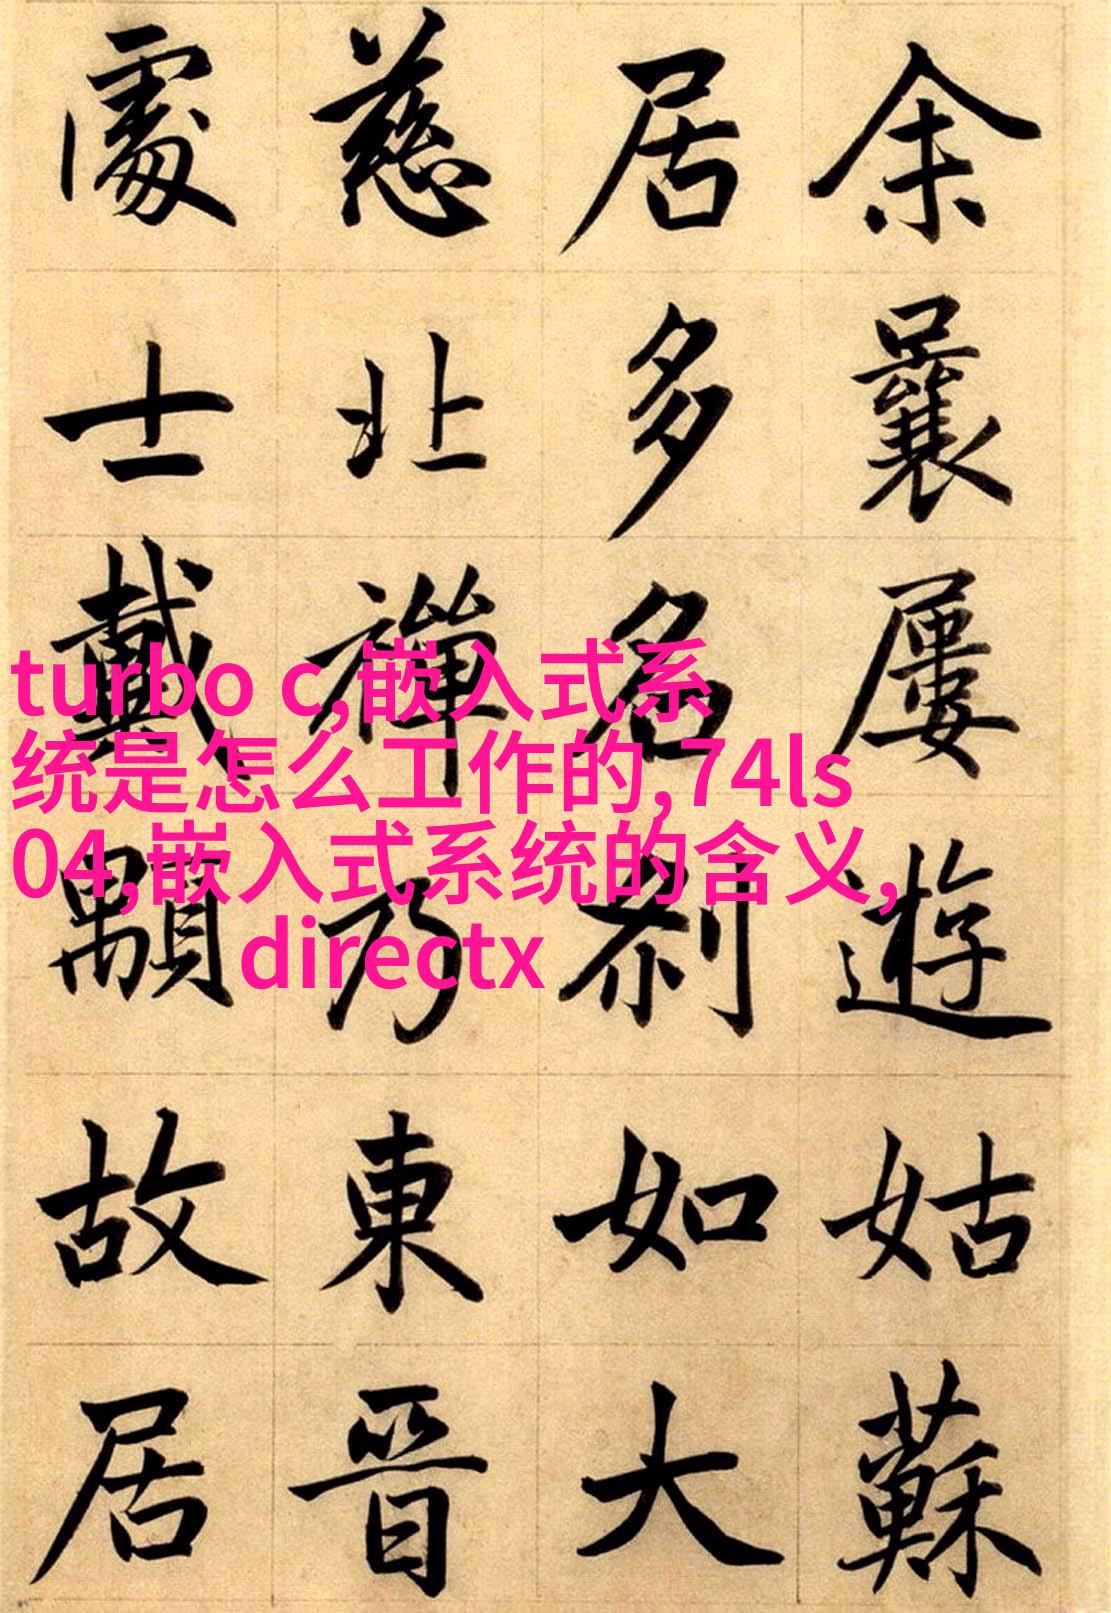 余曩屢遊姑蘇
居多名刹如大
慈北禪乃東晉
處士戴顒故居
turbo c,嵌入式系
统是怎么工作的,74ls
04,嵌入式系统的含义,
directx